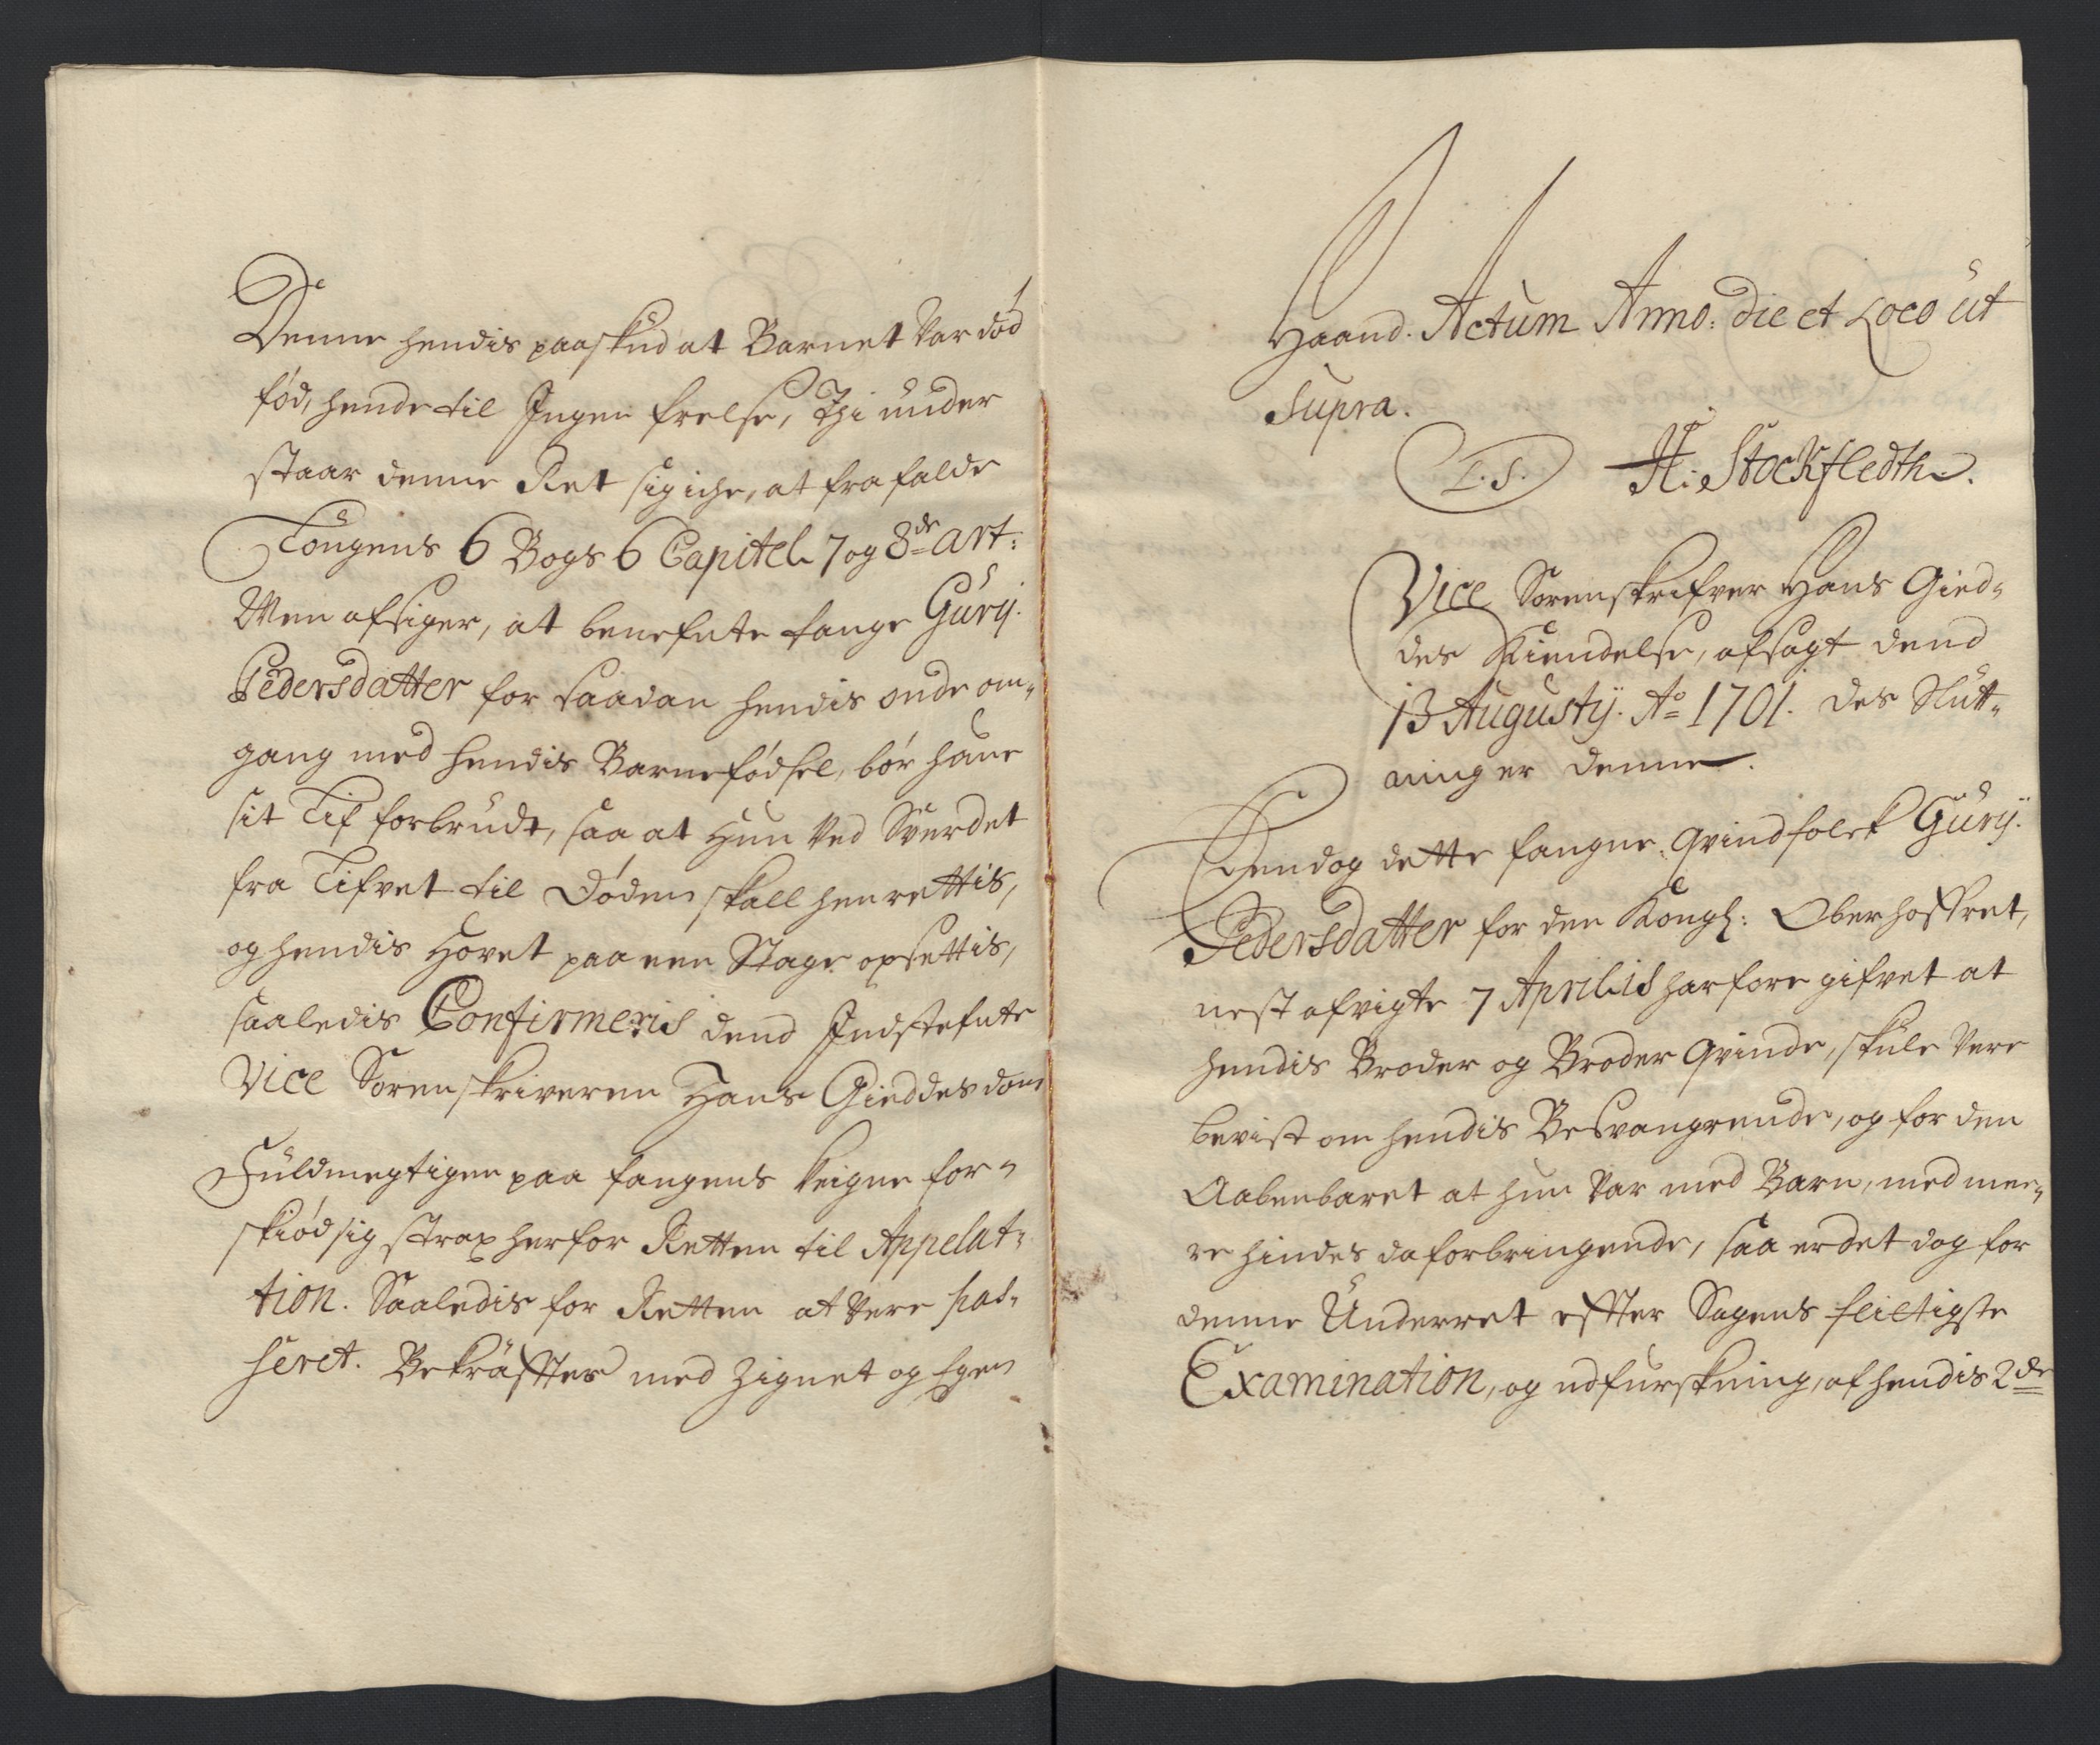 Denne hendis paaskud at Barnet var død
fød, hende til Ingen frelse, Thi under
staar denne Ret sig iche, at fra falde
Lougens 6 Bogs 6 Capitel 7 og 8de art:
Men afsiger, at benefnte fange Gury
Pedersdatter for saadan hendis onde om-
gang med hendis Barnefødsel, bør have
sit Lif forbrudt, saa at Hun ved Sverdet
fra Lifvet til Døden skall henrettis,
og hendis Hovet paa een Stage opsettis,
saaledis Confirmeris dend Indstefnte
Vice Sorenskriveren Hans Gieddes dom
Fuldmegtigen paa fangens veigne for-
skiød sig strax herfor Retten til Appelat-
tion. Saaledis for Retten at vere pas-
seret. Bekräfftes med Zignet og Egen
Haand. Actum Anno: die et Loco ut
Supra.
L. S. H: Stockfledth.
Vice Sorenskrifver Hans Gied-
des Kiendelse, afsagt dend
13 Augustij. Ao 1701. des Slutt-
ning er denne.
Endog dette fangne qvindfolck Gury
Pedersdatter for den Kongl: Oberhoffret,
nest afvigte 7 Aprilis har foregifvet at
hendis Broder og Broder qvinde, skule vere
bevist om hendis Besvangrende, og for den
Aabenbaret at hun var med Barn, med mee-
re hindes da forbringende, saa er det dog for
denne Underret effter Sagens flietigste
Examination, og udfurskning, af hendis 2de